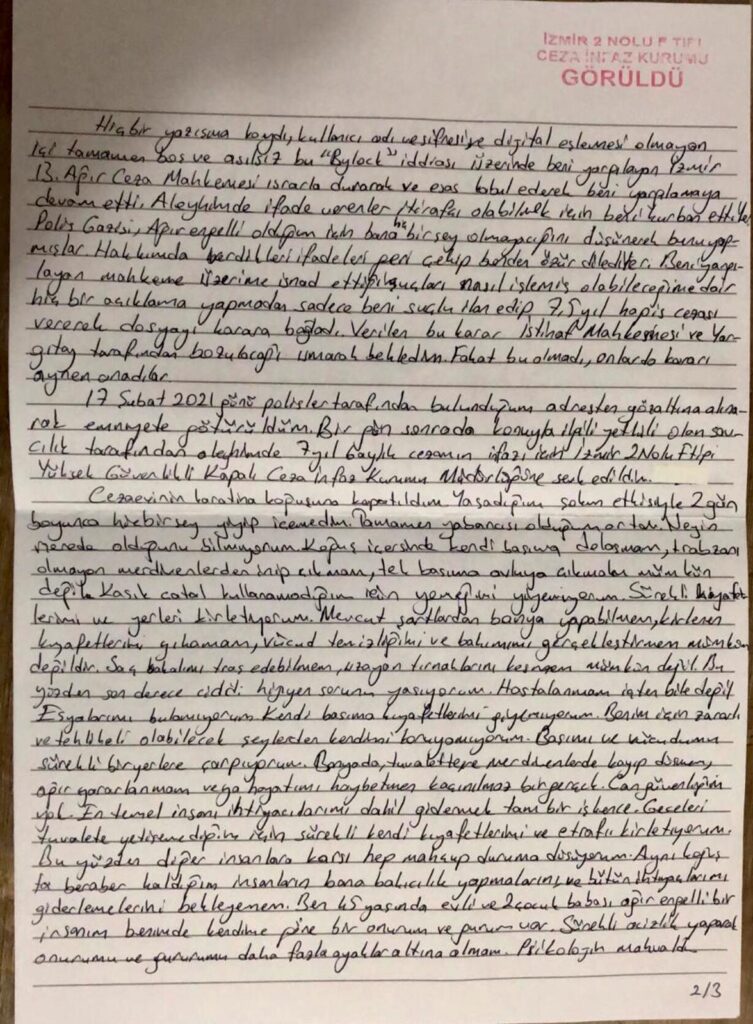 İZMİR 2 NOLU F TİPİ
CEZA İNFAZ KURUMU
GÖRÜLDÜ
Hiçbir yazışma kaydı, kullanıcı adı ve şifresi ve digital eşlemesi olmayan
içi tamamen boş ve asılsız bu "Bylock" iddiası üzerinde beni yargılayan İzmir
13. Ağır Ceza Mahkemesi ısrarla durarak ve esas kabul ederek beni yargılamaya
devam etti. Aleyhimde ifade verenler itirafçı olabilmek için beni kurban ettiler
Polis Gazisi, Ağır engelli olduğum için bana hiç bir şey olmayacağını düşünerek bunu yap-
mışlar. Hakkımda verdikleri ifadeleri geri çekip benden özür dilediler. Beni yargı-
layan mahkeme üzerime isnad ettiği suçları nasıl işlemiş olabileceğime dair
hiç bir açıklama yapmadan sadece beni suçlu ilan edip 7,5 yıl hapis cezası
vererek dosyayı karara bağladı. Verilen bu karar İstinaf Mahkemesi ve Yar-
gıtay tarafından bozulacağı umarak bekledim. Fakat bu olmadı, onlarda kararı
aynen onadılar.
17 Şubat 2021 günü polisler tarafından bulunduğum adresten gözaltına alına-
rak emniyete götürüldüm. Bir gün sonrada konuyla ilgili yetkili olan sav-
cılık tarafından aleyhimde 7 yıl 6 aylık cezamın infazı için İzmir 2 Nolu F tipi
Yüksek Güvenlikli Kapalı Ceza İnfaz Kurumu Müdürlüğüne sevk edildim.
Cezaevinin karantina koğuşuna kapatıldım. Yaşadığım şokun etkisiyle 2 gün
boyunca hiçbir şey yiyip içemedim. Tamamen yabancısı olduğum ortam. Neyin
nerede olduğunu bilmiyorum. Koğuş içersinde kendi başıma dolaşmam, trabzanı
olmayan merdivenlerden inip çıkmam, tek başıma avluya çıkmam mümkün
değil. Kaşık çatal kullanamadığım için yemeğimi yiyemiyorum. Sürekli kıyafet-
lerimi ve yerleri kirletiyorum. Mevcut şartlardan banyo yapabilmem, kirlenen
kıyafetlerimi yıkamam, vücud temizliğimi ve bakımımı gerçekleştirmem mümkün
değildir. Saç sakalımı traş edebilmem, uzayan tırnaklarımı kesmem mümkün değil. Bu
yüzden son derece ciddi hijyen sorunu yaşıyorum. Hastalanmam işten bile değil
Eşyalarımı bulamıyorum. Kendi başıma kıyafetlerimi giyemiyorum. Benim için zararlı
ve tehlikeli olabilecek şeylerden kendimi koruyamıyorum. Başımı ve vücudumu
sürekli biryerlere çarpıyorum. Banyoda, tuvalette ve merdivenlerde kayıp düşmem,
ağır yaralanmam veya hayatımı kaybetmem kaçınılmaz bir gerçek. Can güvenliğim
yok. En temel insani ihtiyaçlarımı dahil gidermek tam bir işkence. Geceleri
tuvalete yetişemediğim için sürekli kendi kıyafetlerimi ve etrafı kirletiyorum.
Bu yüzden diğer insanlara karşı hep mahcup duruma düşüyorum. Aynı koğuş
ta beraber kaldığım insanların bana bakıcılık yapmalarını, ve bütün ihtiyaçlarımı
gidermelerini bekleyemem. Ben 45 yaşında evli ve 2 çocuk babası ağır engelli bir
insanım benimde kendime göre bir onurum ve gururum var. Sürekli acizlik yaparak
onurumu ve gururumu daha fazla ayaklar altına almam. Psikolojik mahvoldu
2/3